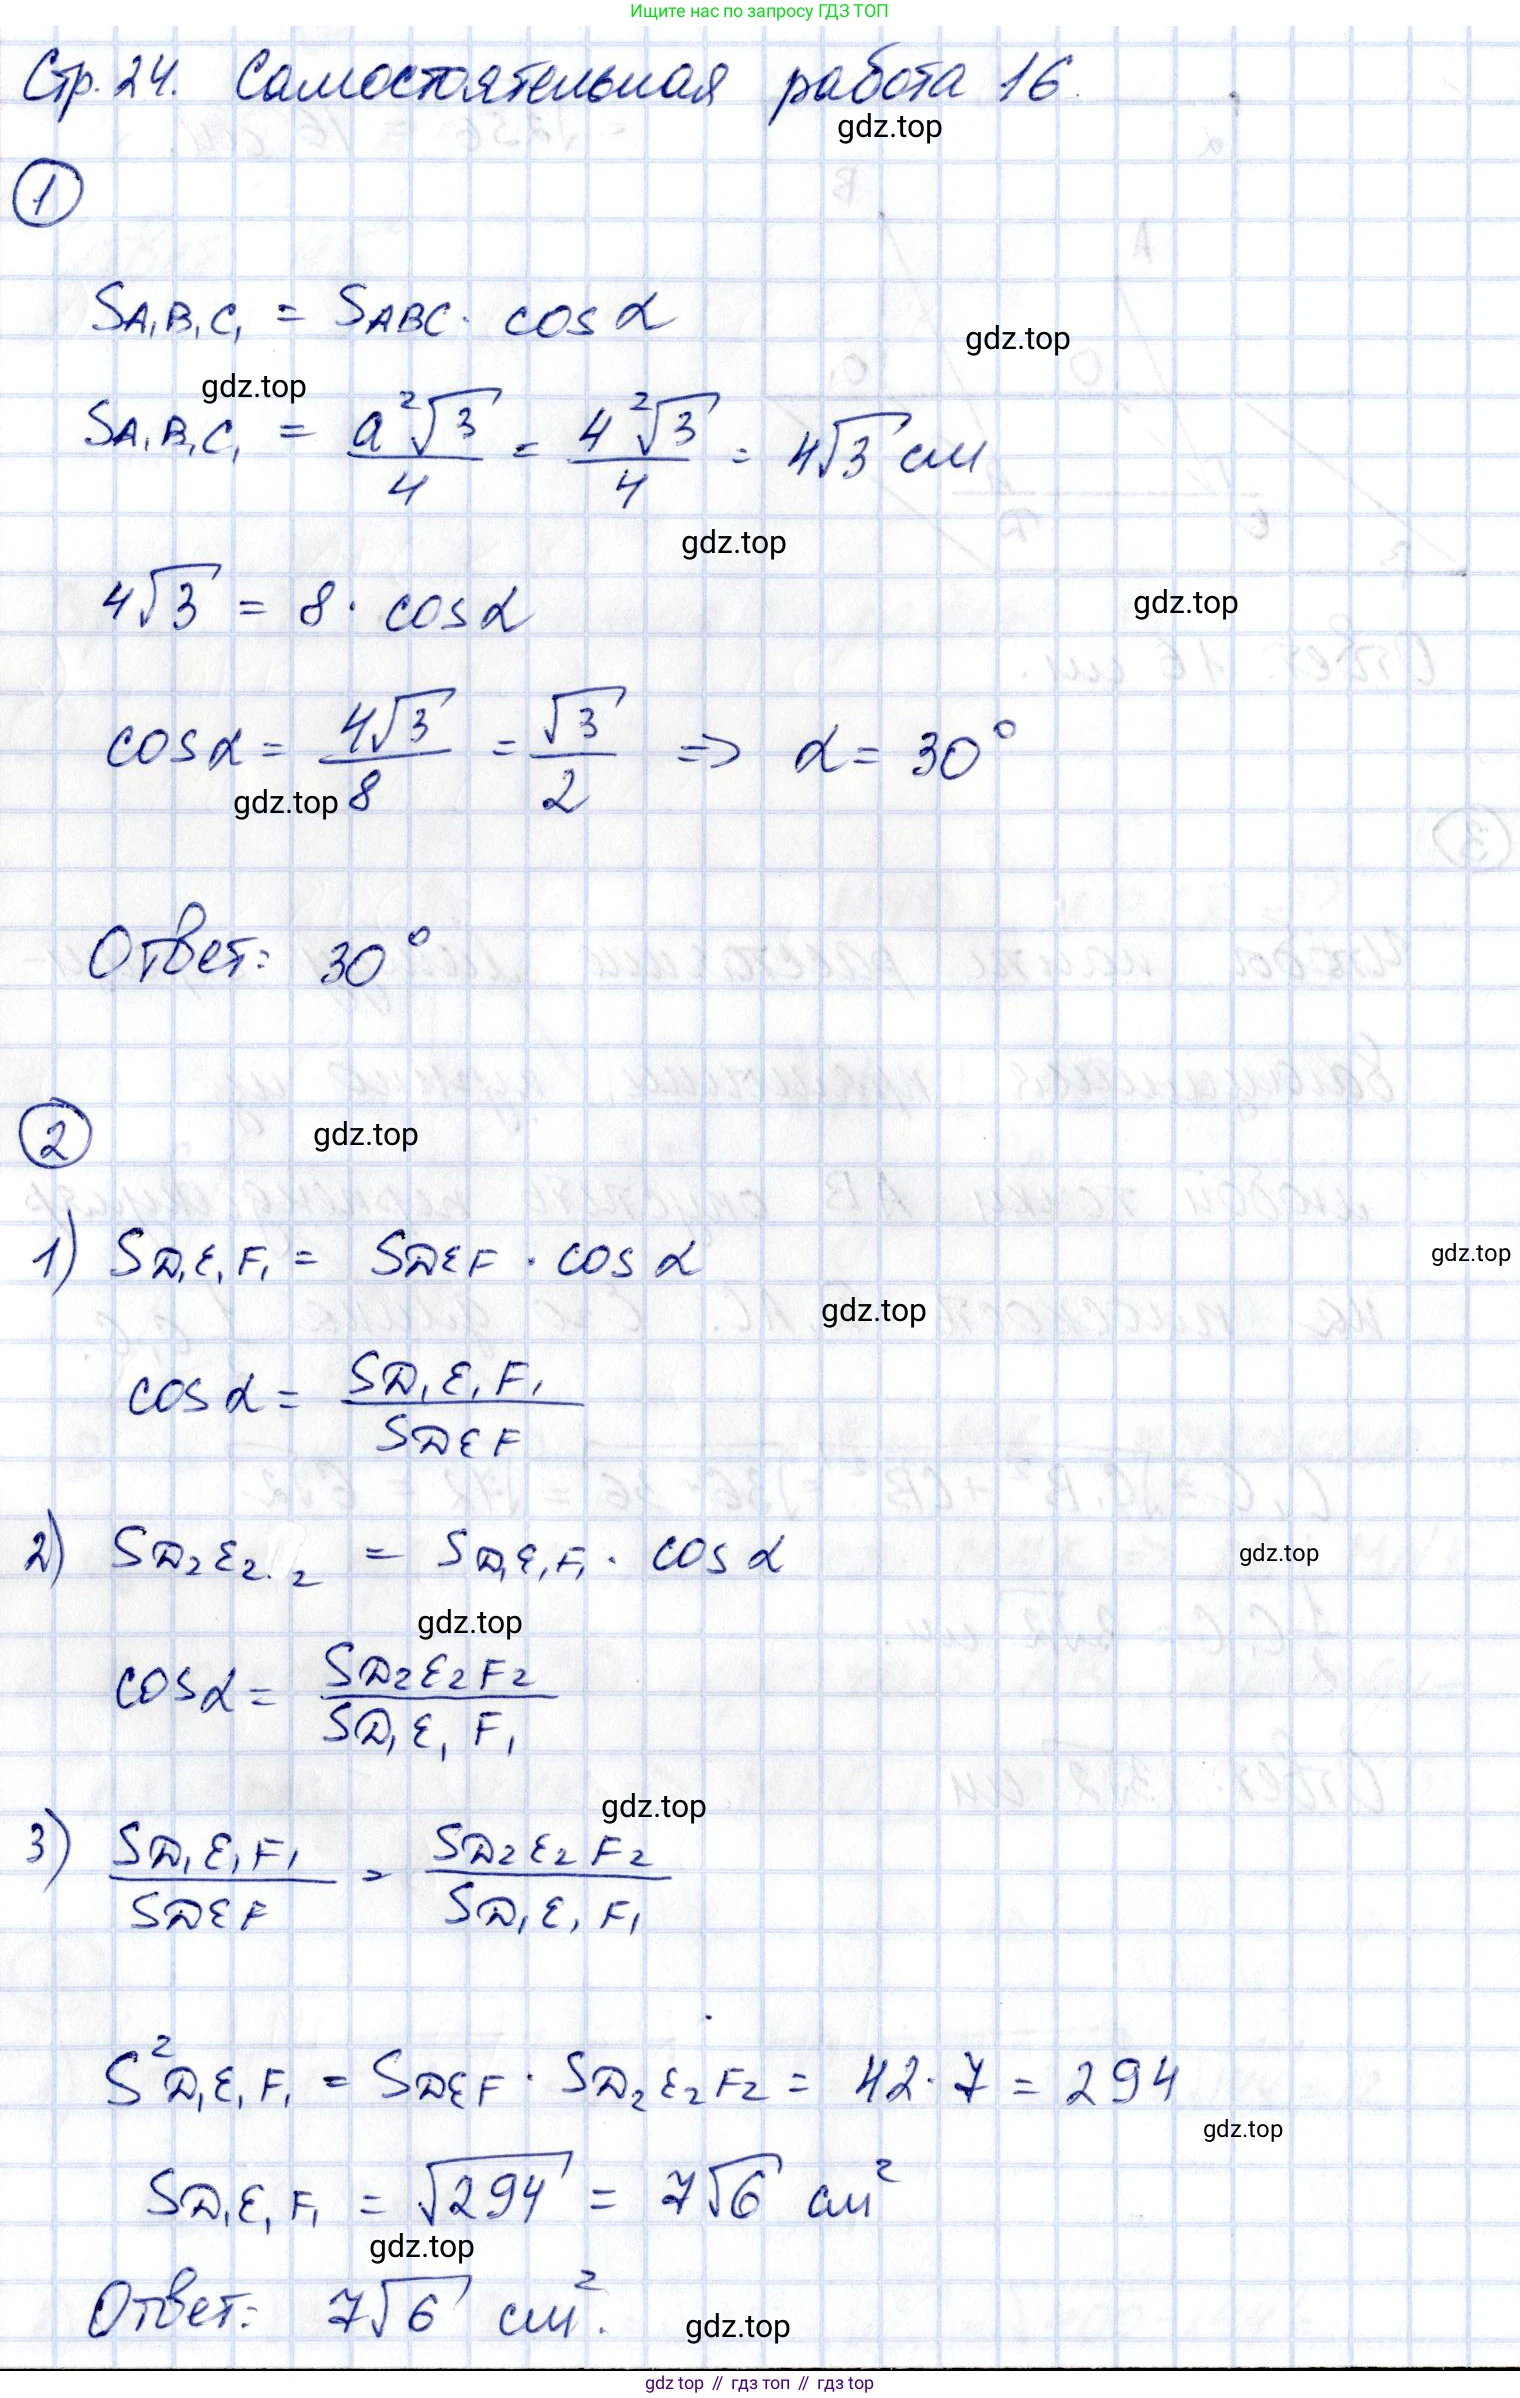 Ищите нас по запросу ГДЗ ТОП
Стр. 24. Самостоятельная работа 16.
gdz.top
1
S A₁B₁C₁ = S ABC · cos α
gdz.top
gdz.top
S A₁B₁C₁ = a²√3/4 = 4²√3/4 = 4√3 см
gdz.top
4√3 = 8 · cos α
gdz.top
cos α = 4√3/8 = √3/2 => α = 30°
gdz.top
Ответ: 30°
2
gdz.top
1) S D₁E₁F₁ = S DEF · cos α
gdz.top
gdz.top
cos α = S D₁E₁F₁/S DEF
2) S D₂E₂.₂ = S D₁E₁F₁ · cos α
gdz.top
gdz.top
cos α = S D₂E₂F₂/S D₁E₁F₁
gdz.top
3) S D₁E₁F₁/S DEF = S D₂E₂F₂/S D₁E₁F₁
S² D₁E₁F₁ = S DEF · S D₂E₂F₂ = 42 · 7 = 294
gdz.top
S D₁E₁F₁ = √294 = 7√6 см²
gdz.top
Ответ: 7√6 см².
gdz.top
gdz top // гдз топ // гдз top